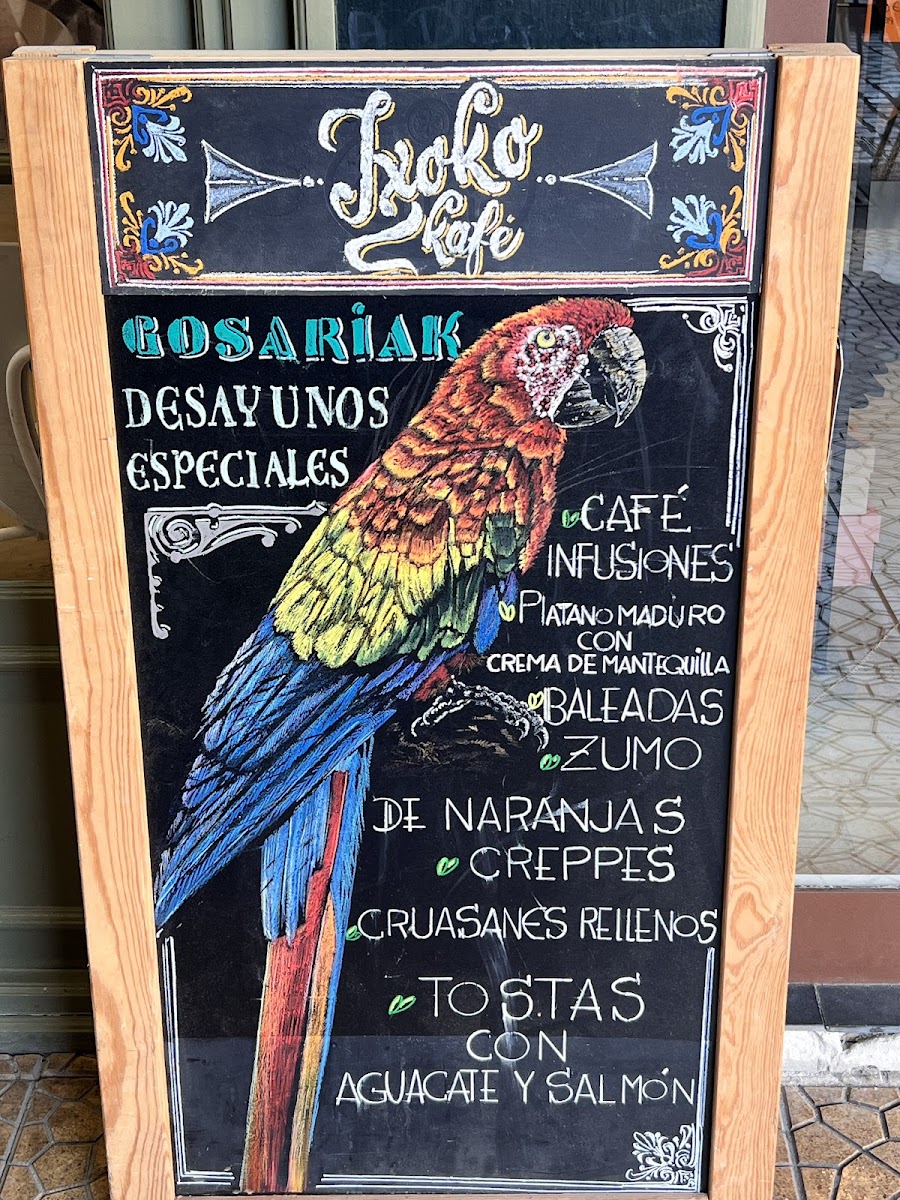 Txoko
Kafé
GOSARIAK
DESAYUNOS
ESPECIALES
CAFÉ
INFUSIONES
PLATANO MADURO
CON
CREMA DE MANTEQUILLA
BALEADAS
ZUMO
DE NARANJAS
CREPPES
CRUASANES RELLENOS
TOSTAS
CON
AGUACATE Y SALMÓN